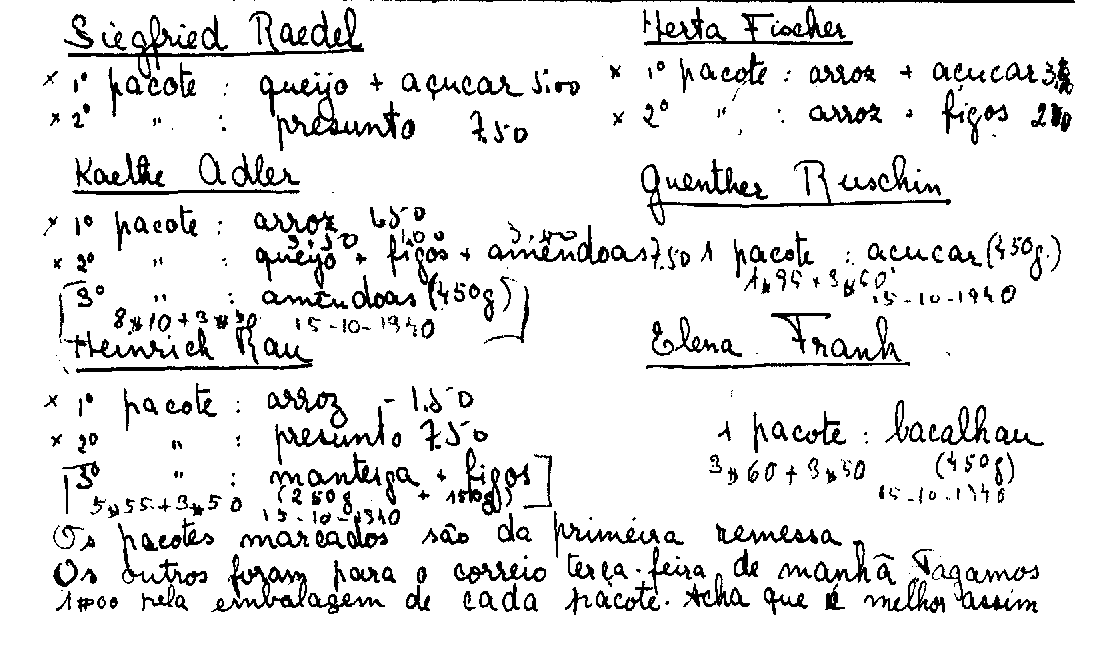 Siegfried Raedel
× 1º pacote : queijo + açucar 5.00
× 2º " : presunto 7.50
Kaethe Adler
× 1º pacote : arroz 1.50
3.50 1.00 3.00
× 2º " : queijo + figos + amêndoas 7.50
[3º " : amêndoas (450g)
8$10 + 3$50 15-10-1940]
Heinrich Rau
× 1º pacote : arroz - 1.50
× 2º " : presunto 7.50
[3º " : manteiga + figos]
5$55 + 3$50 (250g + 150g)
15-10-1940
Herta Fischer
× 1º pacote : arroz + açucar
× 2º " : arroz + figos
Guenther Ruschin
1 pacote : açucar (450g.)
1$95 + 3$50
15-10-1940
Elena Frank
1 pacote : bacalhau
3$60 + 3$50 (450g)
15-10-1940
Os pacotes marcados são da primeira remessa.
Os outros foram para o correio terça-feira de manhã Pagamos
1$00 pela embalagem de cada pacote. Acha que é melhor assim